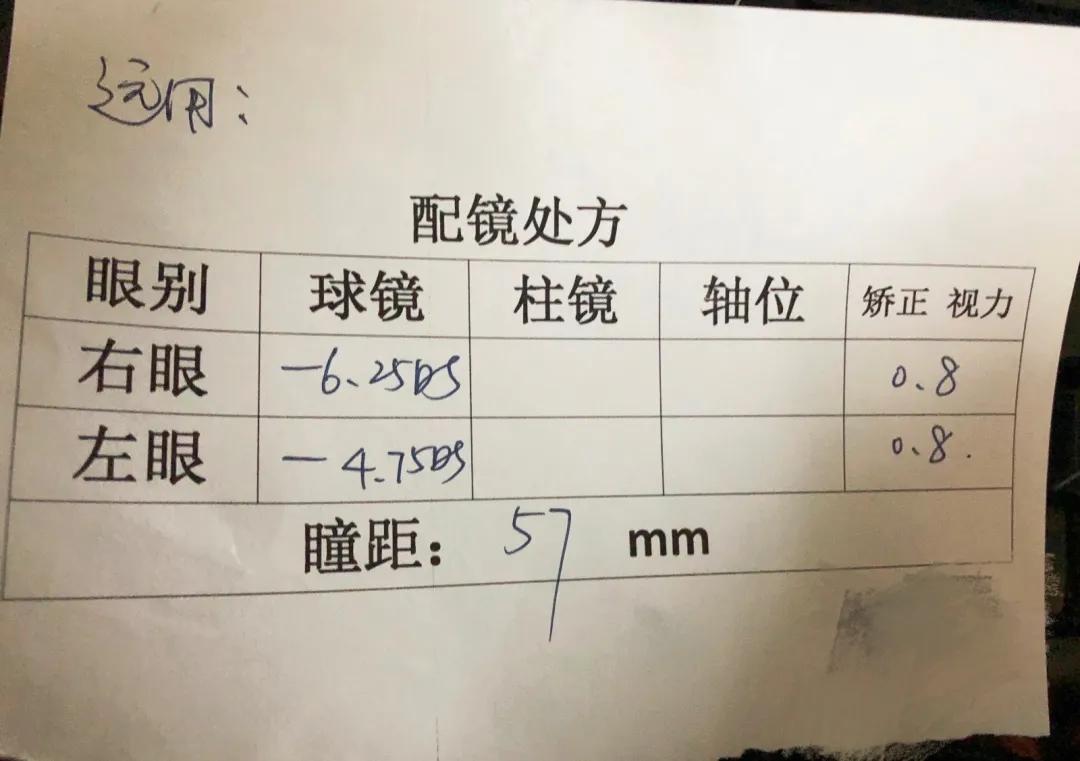 远用：
配镜处方
眼别 球镜 柱镜 轴位 矫正 视力
右眼 -6.25DS 0.8
左眼 -4.75DS 0.8.
瞳距： 57 mm